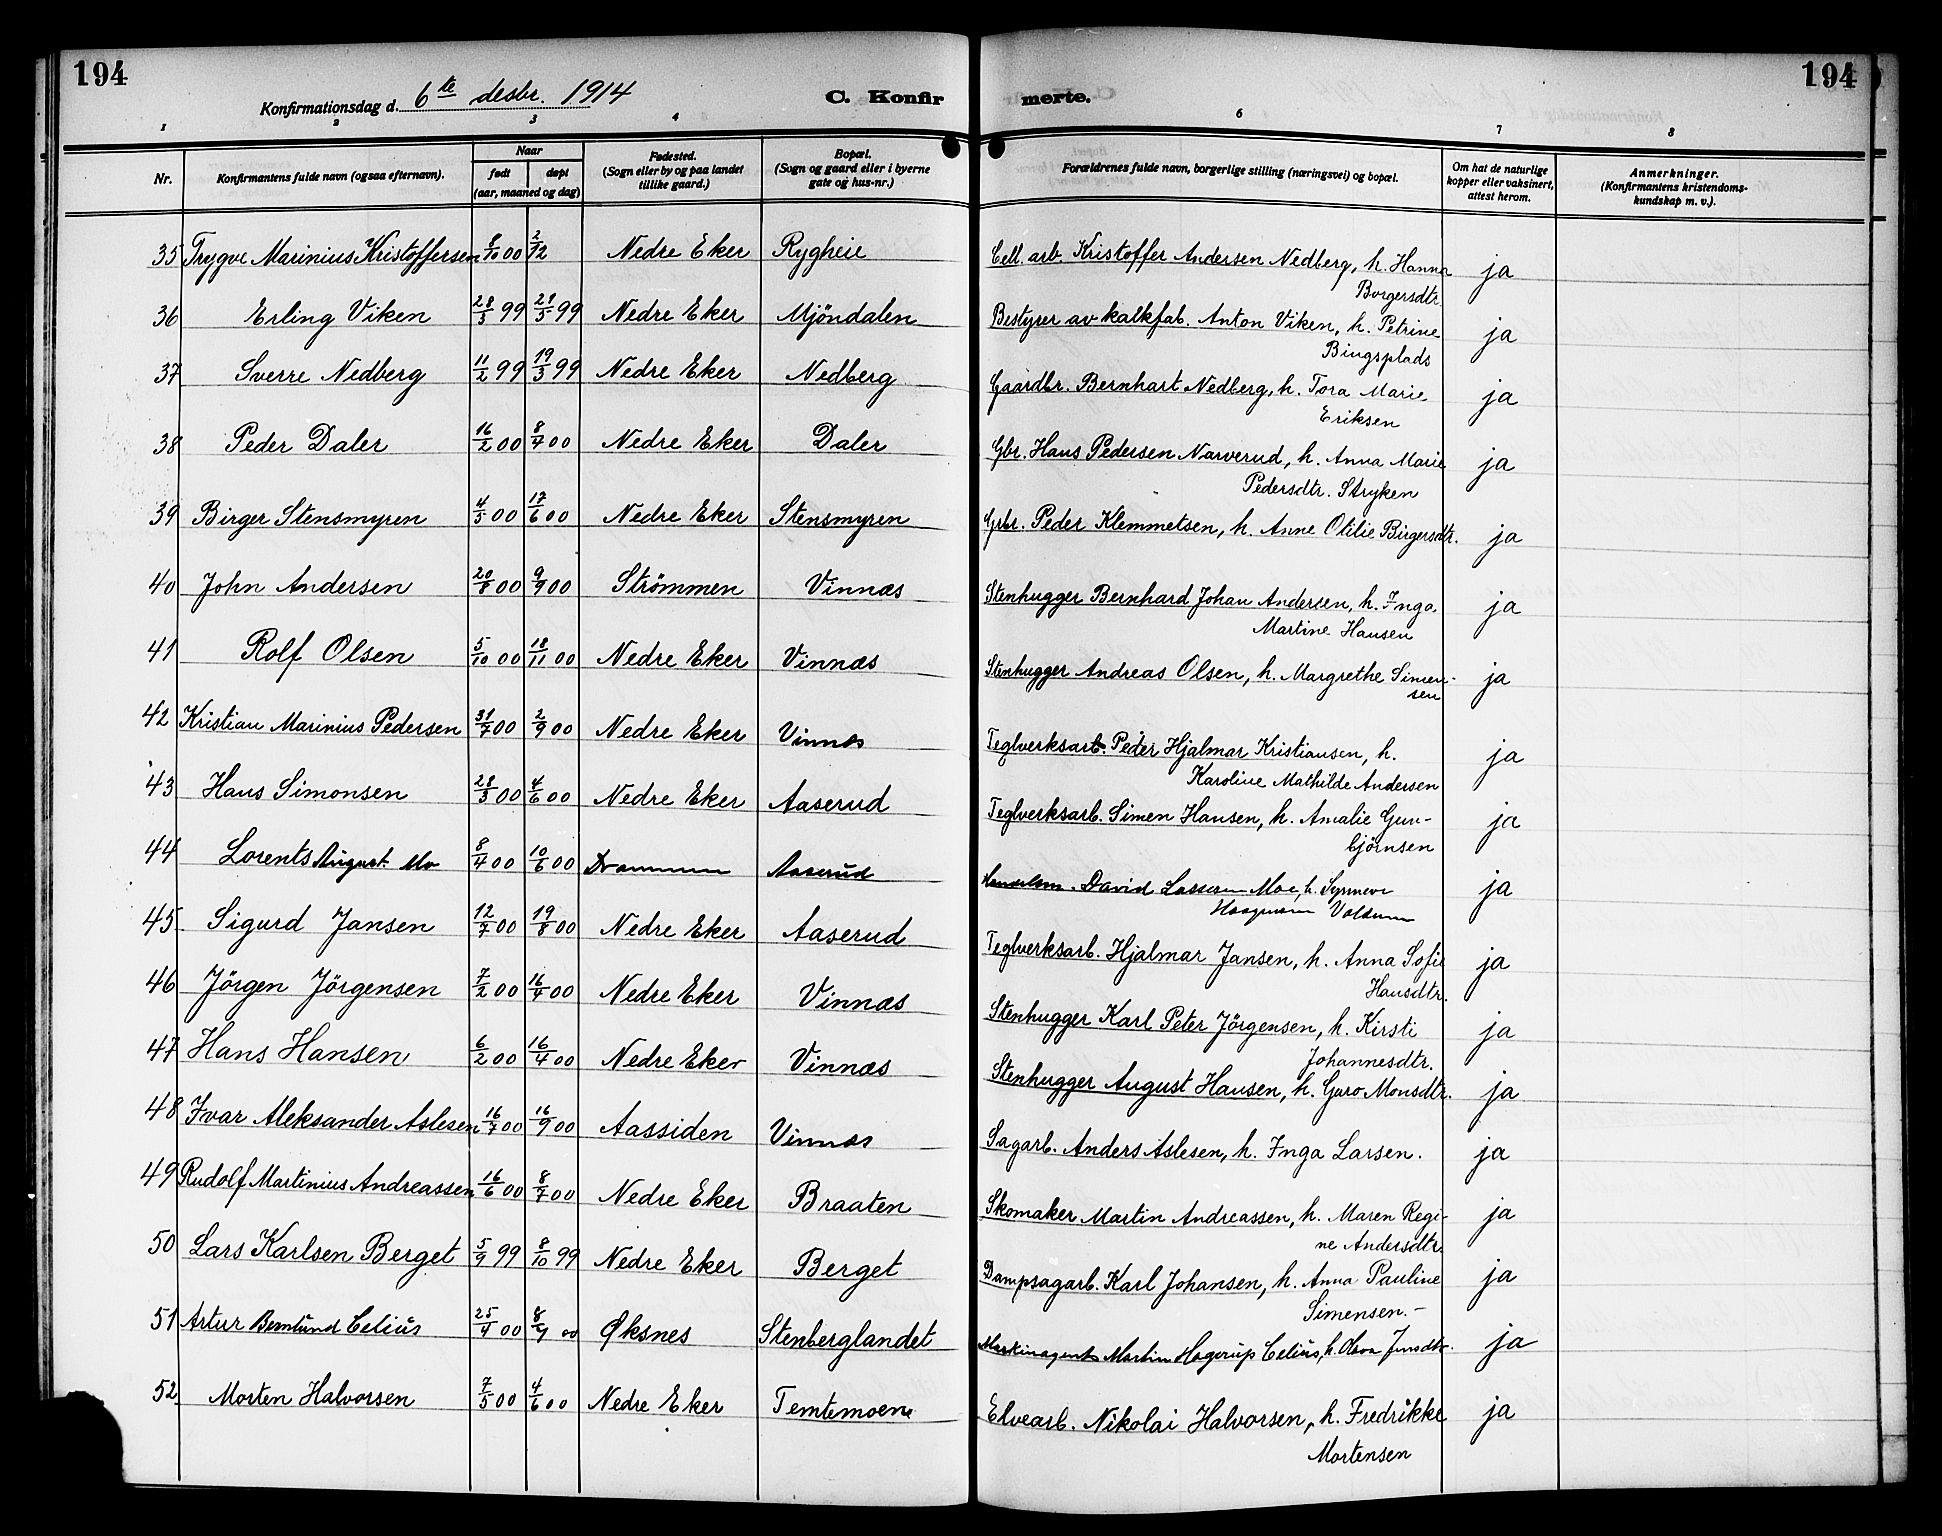 194
194
Konfirmationsdag d. 6te desbr. 1914
C. Konfir
merte.
1 2 3 4 6 7 8
Nr.
Konfirmantens fulde navn (ogsaa efternavn).
Naar
født døpt
(aar, maaned og dag)
Fødested.
(Sogn eller by og paa landet
tillike gaard.)
Bopæl.
(Sogn og gaard eller i byerne
gate og hus-nr.)
Forældrenes fulde navn, borgerlige stilling (næringsvei) og bopæl.
Om hat de naturlige
kopper eller vaksinert,
attest herom.
Anmerkninger.
(Konfirmantens kristendoms-
kundskap m. v.).
35 Trygve Marinius Kristoffersen 8/10 00 2/12 Nedre Eker Rygheie Cell. arb. Kristoffer Andersen Nedberg, h. Hanna ja
Borgersdtr.
36 Erling Viken 28/3 99 21/5 99 Nedre Eker Mjöndalen Bestyrer av kalkfab. Anton Viken, h. Petrine ja
Bingsplads
37 Sverre Nedberg 11/2 99 19/3 99 Nedre Eker Nedberg Gaardbr. Bernhart Nedberg, h. Tora Marie ja
Eriksen
38 Peder Daler 16/2 00 8/4 00 Nedre Eker Daler Gbr. Hans Pedersen Narverud, h. Anna Marie ja
Pedersdtr. Stryken
39 Birger Stensmyren 4/5 00 17/6 00 Nedre Eker Stensmyren Gbr. Peder Klemmetsen, h. Anne Otilie Birgersdtr. ja
40 John Andersen 20/8 00 9/9 00 Strömmen Vinnæs Stenhugger Bernhard Johan Andersen, h. Inga ja
Martine Hansen
41 Rolf Olsen 5/10 00 18/11 00 Nedre Eker Vinnæs Stenhugger Andreas Olsen, h. Margrethe Simen- ja
sen
42 Kristian Marinius Pedersen 31/7 00 2/9 00 Nedre Eker Vinnæs Teglverksarb. Peder Hjalmar Kristiansen, h. ja
Karoline Mathilde Andersen
43 Hans Simonsen 28/3 00 4/6 00 Nedre Eker Aaserud Teglverksarb. Simen Hansen, h. Amalie Gun- ja
björnsen
44 Lorents August Mo 8/4 00 10/6 00 Drammen Aaserud David Moe, h. ja
45 Sigurd Jansen 12/7 00 19/8 00 Nedre Eker Aaserud Teglverksarb. Hjalmar Jansen, h. Anna Sofie ja
Hansdtr.
46 Jörgen Jörgensen 7/2 00 16/4 00 Nedre Eker Vinnæs Stenhugger Karl Peter Jörgensen, h. Kirsti ja
Johannesdtr.
47 Hans Hansen 6/2 00 16/4 00 Nedre Eker Vinnæs Stenhugger August Hansen, h. Guro Monsdtr. ja
48 Ivar Aleksander Aslesen 16/7 00 16/9 00 Aassiden Vinnæs Sagarb. Anders Aslesen, h. Inga Larsen. ja
49 Rudolf Martinius Andreassen 16/6 00 8/7 00 Nedre Eker Braaten Skomaker Martin Andreassen, h. Maren Regi- ja
ne Andersdtr.
50 Lars Karlsen Berget 5/9 99 8/10 99 Nedre Eker Berget Dampsagarb. Karl Johansen, h. Anna Pauline ja
Simensen.-
51 Artur Berntund Celius 25/4 00 8/7 00 Øksnes Stenberglandet Maskinagent Martin Hagerup Celius, h. Olava Jensdtr. ja
52 Morten Halvorsen 7/5 00 4/6 00 Nedre Eker Temtemoen Elvearb. Nikolai Halvorsen, h. Fredrikke ja
Mortensen